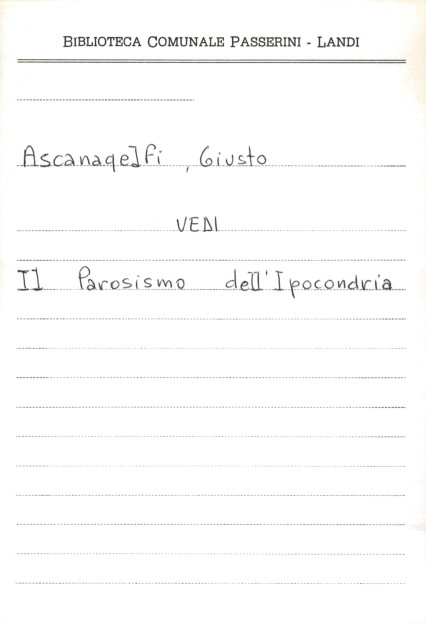 BIBLIOTECA COMUNALE PASSERINI - LANDI
Ascanagelfi, Giusto
VEDI
Il Parosismo dell'Ipocondria